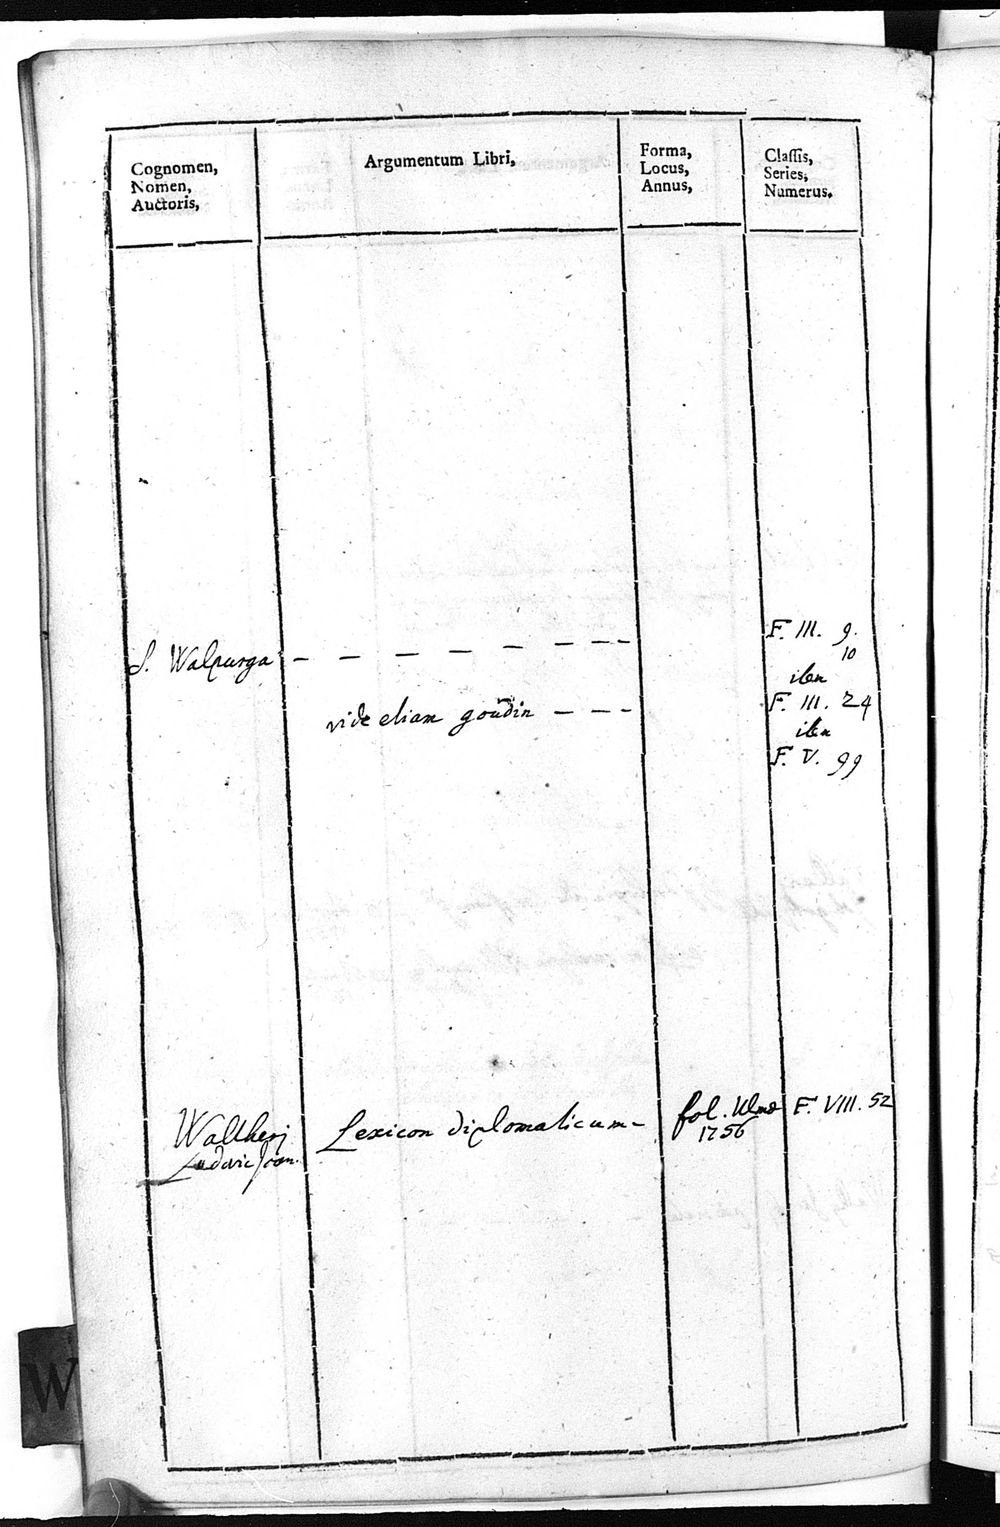 Cognomen,
Nomen,
Auctoris,
Argumentum Libri,
Forma,
Locus,
Annus,
Classis,
Series,
Numerus.
S. Walpurga — — — — — — —
F. III. 9.
10
item
vide etiam goudin — — —
F. III. 24
item
F. V. 99
Waltherj
Ludovic Joan.
Lexicon diplomaticum-
fol. Ulmæ
1756
F. VIII. 52
W